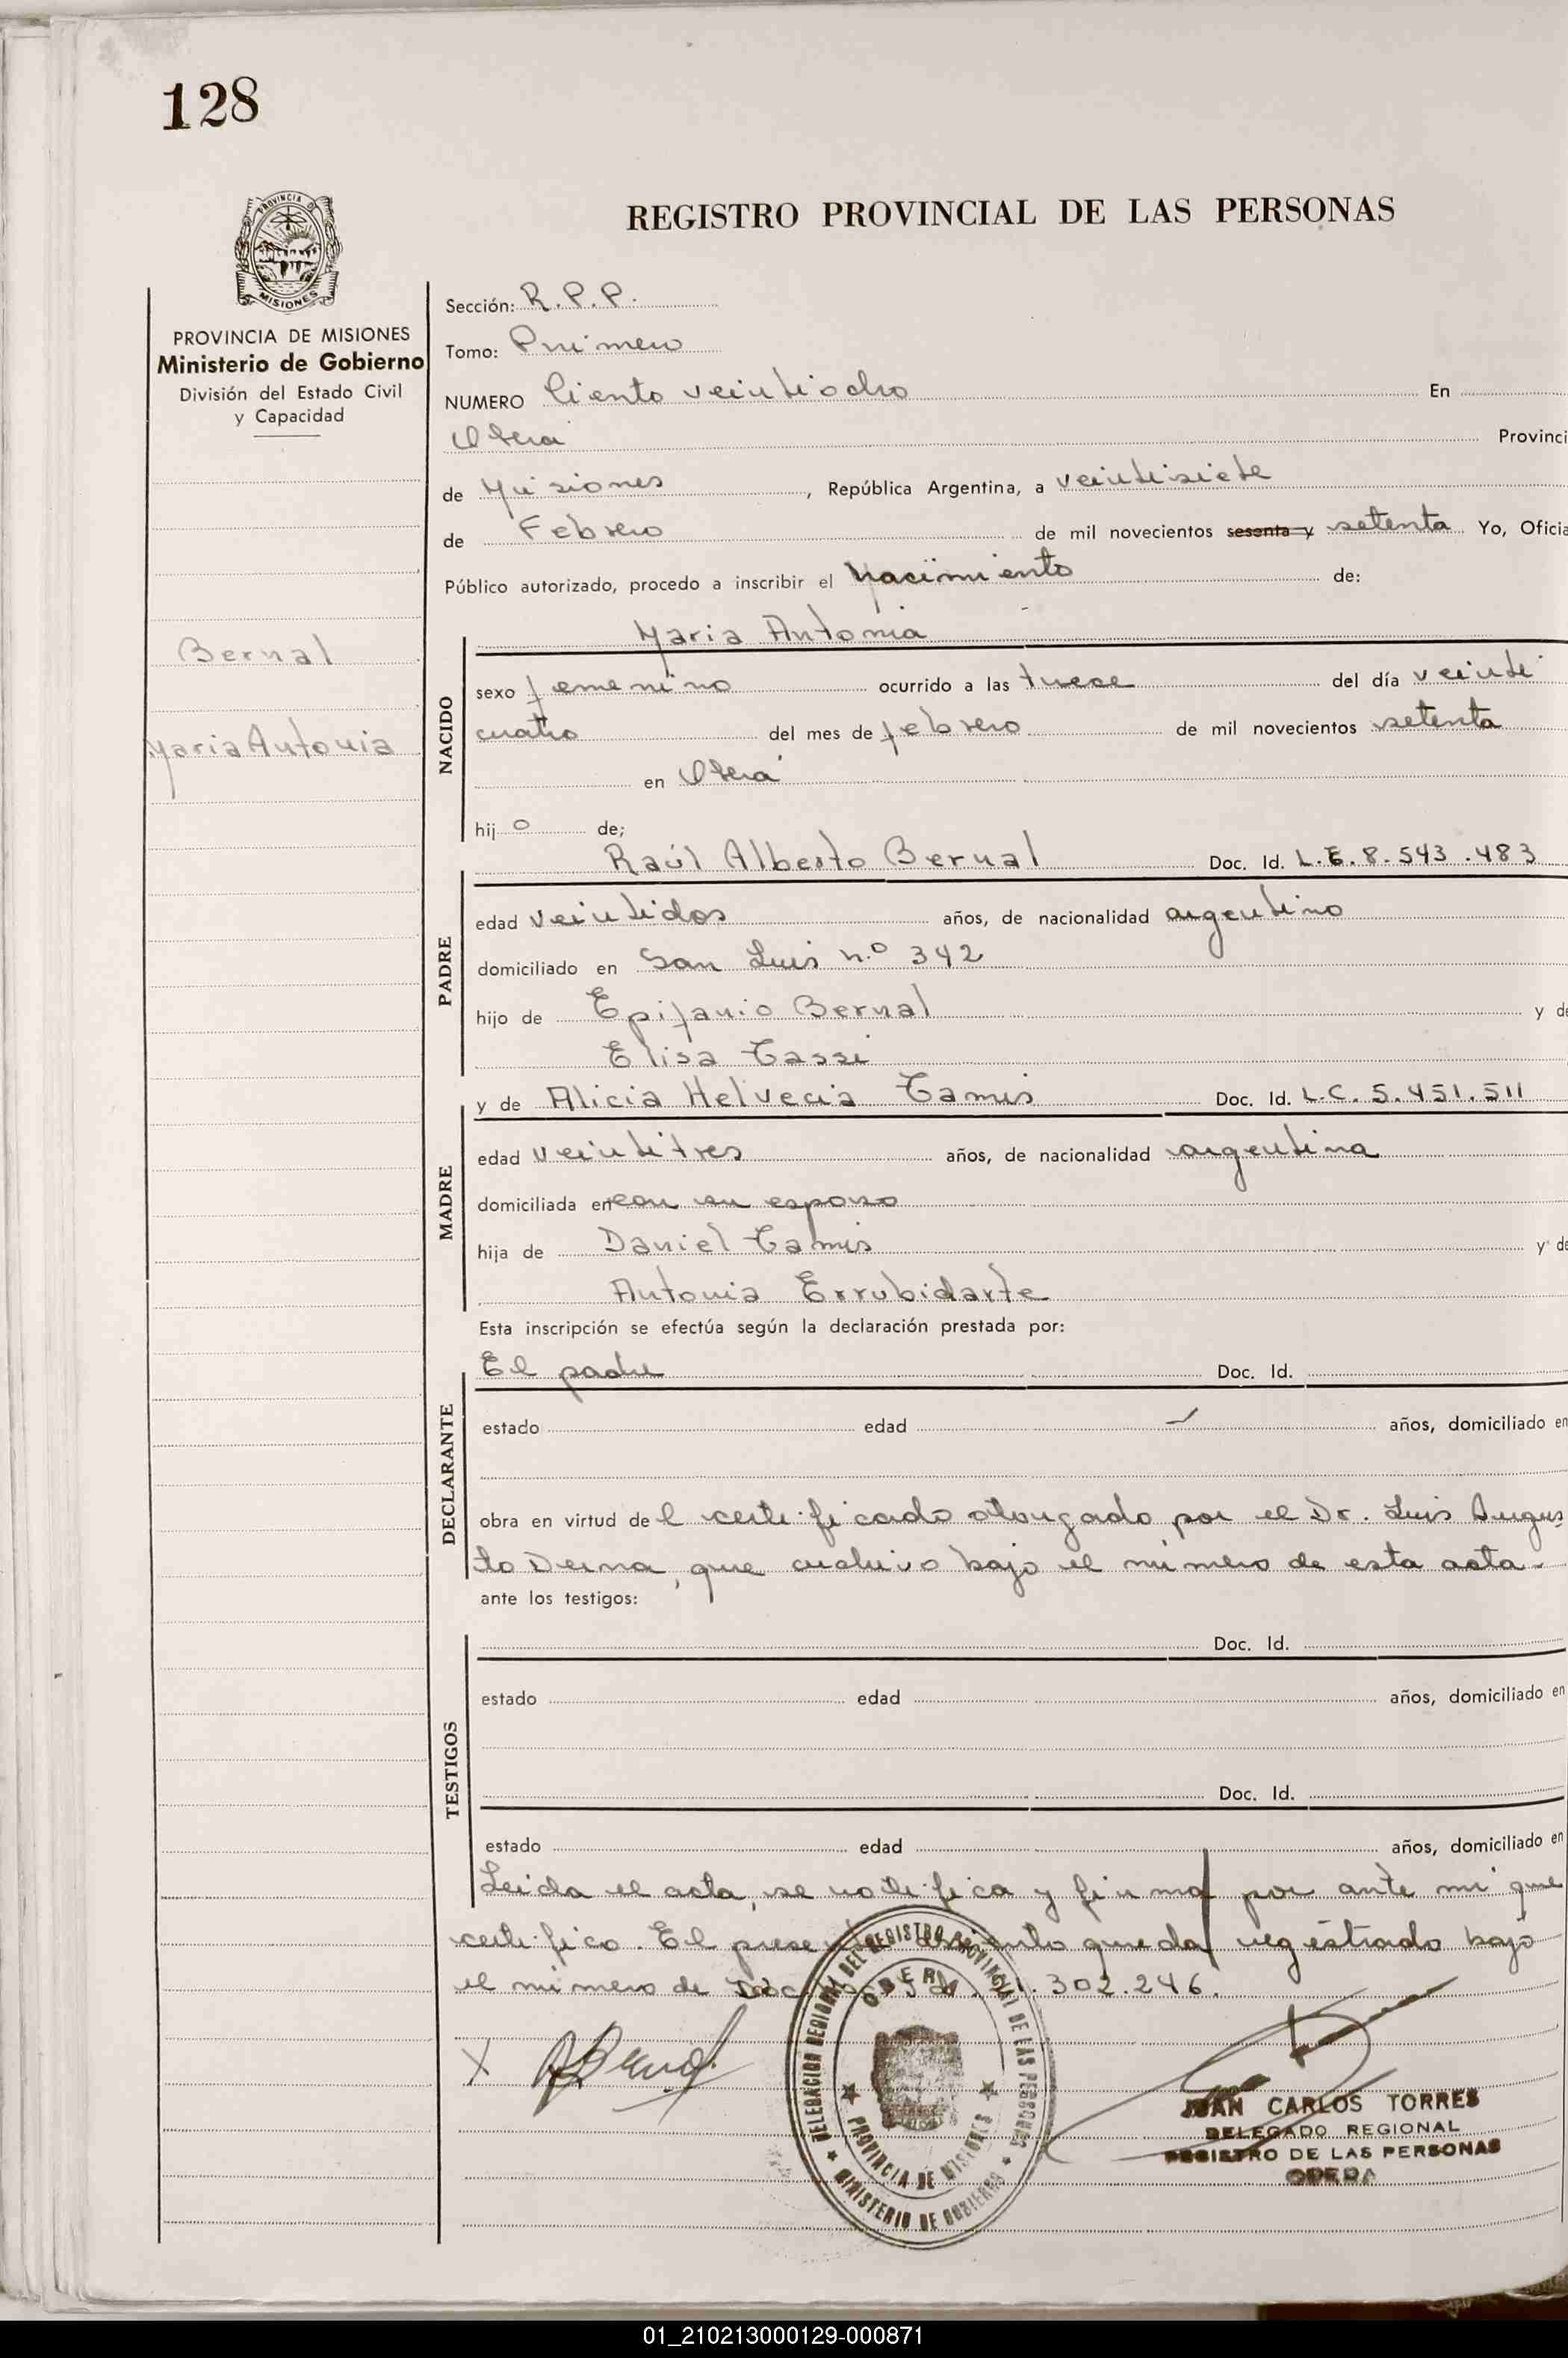 128
REGISTRO PROVINCIAL DE LAS PERSONAS
PROVINCIA DE
MISIONES
PROVINCIA DE MISIONES
Ministerio de Gobierno
División del Estado Civil
y Capacidad
Bernal
Maria Antonia
Sección: R.P.P.
Tomo: Primero
NUMERO Ciento veintiocho En
Oberá Provinci
de Misiones, República Argentina, a veintisiete
de Febrero de mil novecientos sesenta y setenta Yo, Oficia
Público autorizado, procedo a inscribir el Nacimiento de:
NACIDO
Maria Antonia
sexo femenino ocurrido a las trece del día veinti
cuatro del mes de febrero de mil novecientos setenta
en Oberá
hij o de;
PADRE
Raúl Alberto Bernal Doc. Id. L.E. 8.543.483
edad veintidos años, de nacionalidad argentino
domiciliado en San Luis n.º 342
hijo de Epifanio Bernal y de
Elisa Tassi
MADRE
y de Alicia Helvecia Tamis Doc. Id. L.C. 5.451.511
edad veintitres años, de nacionalidad argentina
domiciliada en con su esposo
hija de Daniel Tamis y de
Antonia Errubidarte
Esta inscripción se efectúa según la declaración prestada por:
DECLARANTE
El padre Doc. Id.
estado edad años, domiciliado en
obra en virtud de l certificado otorgado por el Dr. Luis Augus
to Derna, que archivo bajo el número de esta acta.
ante los testigos:
TESTIGOS
Doc. Id.
estado edad años, domiciliado en
Doc. Id.
estado edad años, domiciliado en
Leida el acta, se notifica y firma por ante mi que
certifico. El presente asiento queda registrado bajo
el número de Doc. 302.246.
X
DELEGACION REGIONAL DEL REGISTRO PROVINCIAL DE LAS PERSONAS
OBERA
PROVINCIA DE MISIONES
MINISTERIO DE GOBIERNO
JUAN CARLOS TORRES
DELEGADO REGIONAL
REGISTRO DE LAS PERSONAS
OBERA
01_210213000129-000871